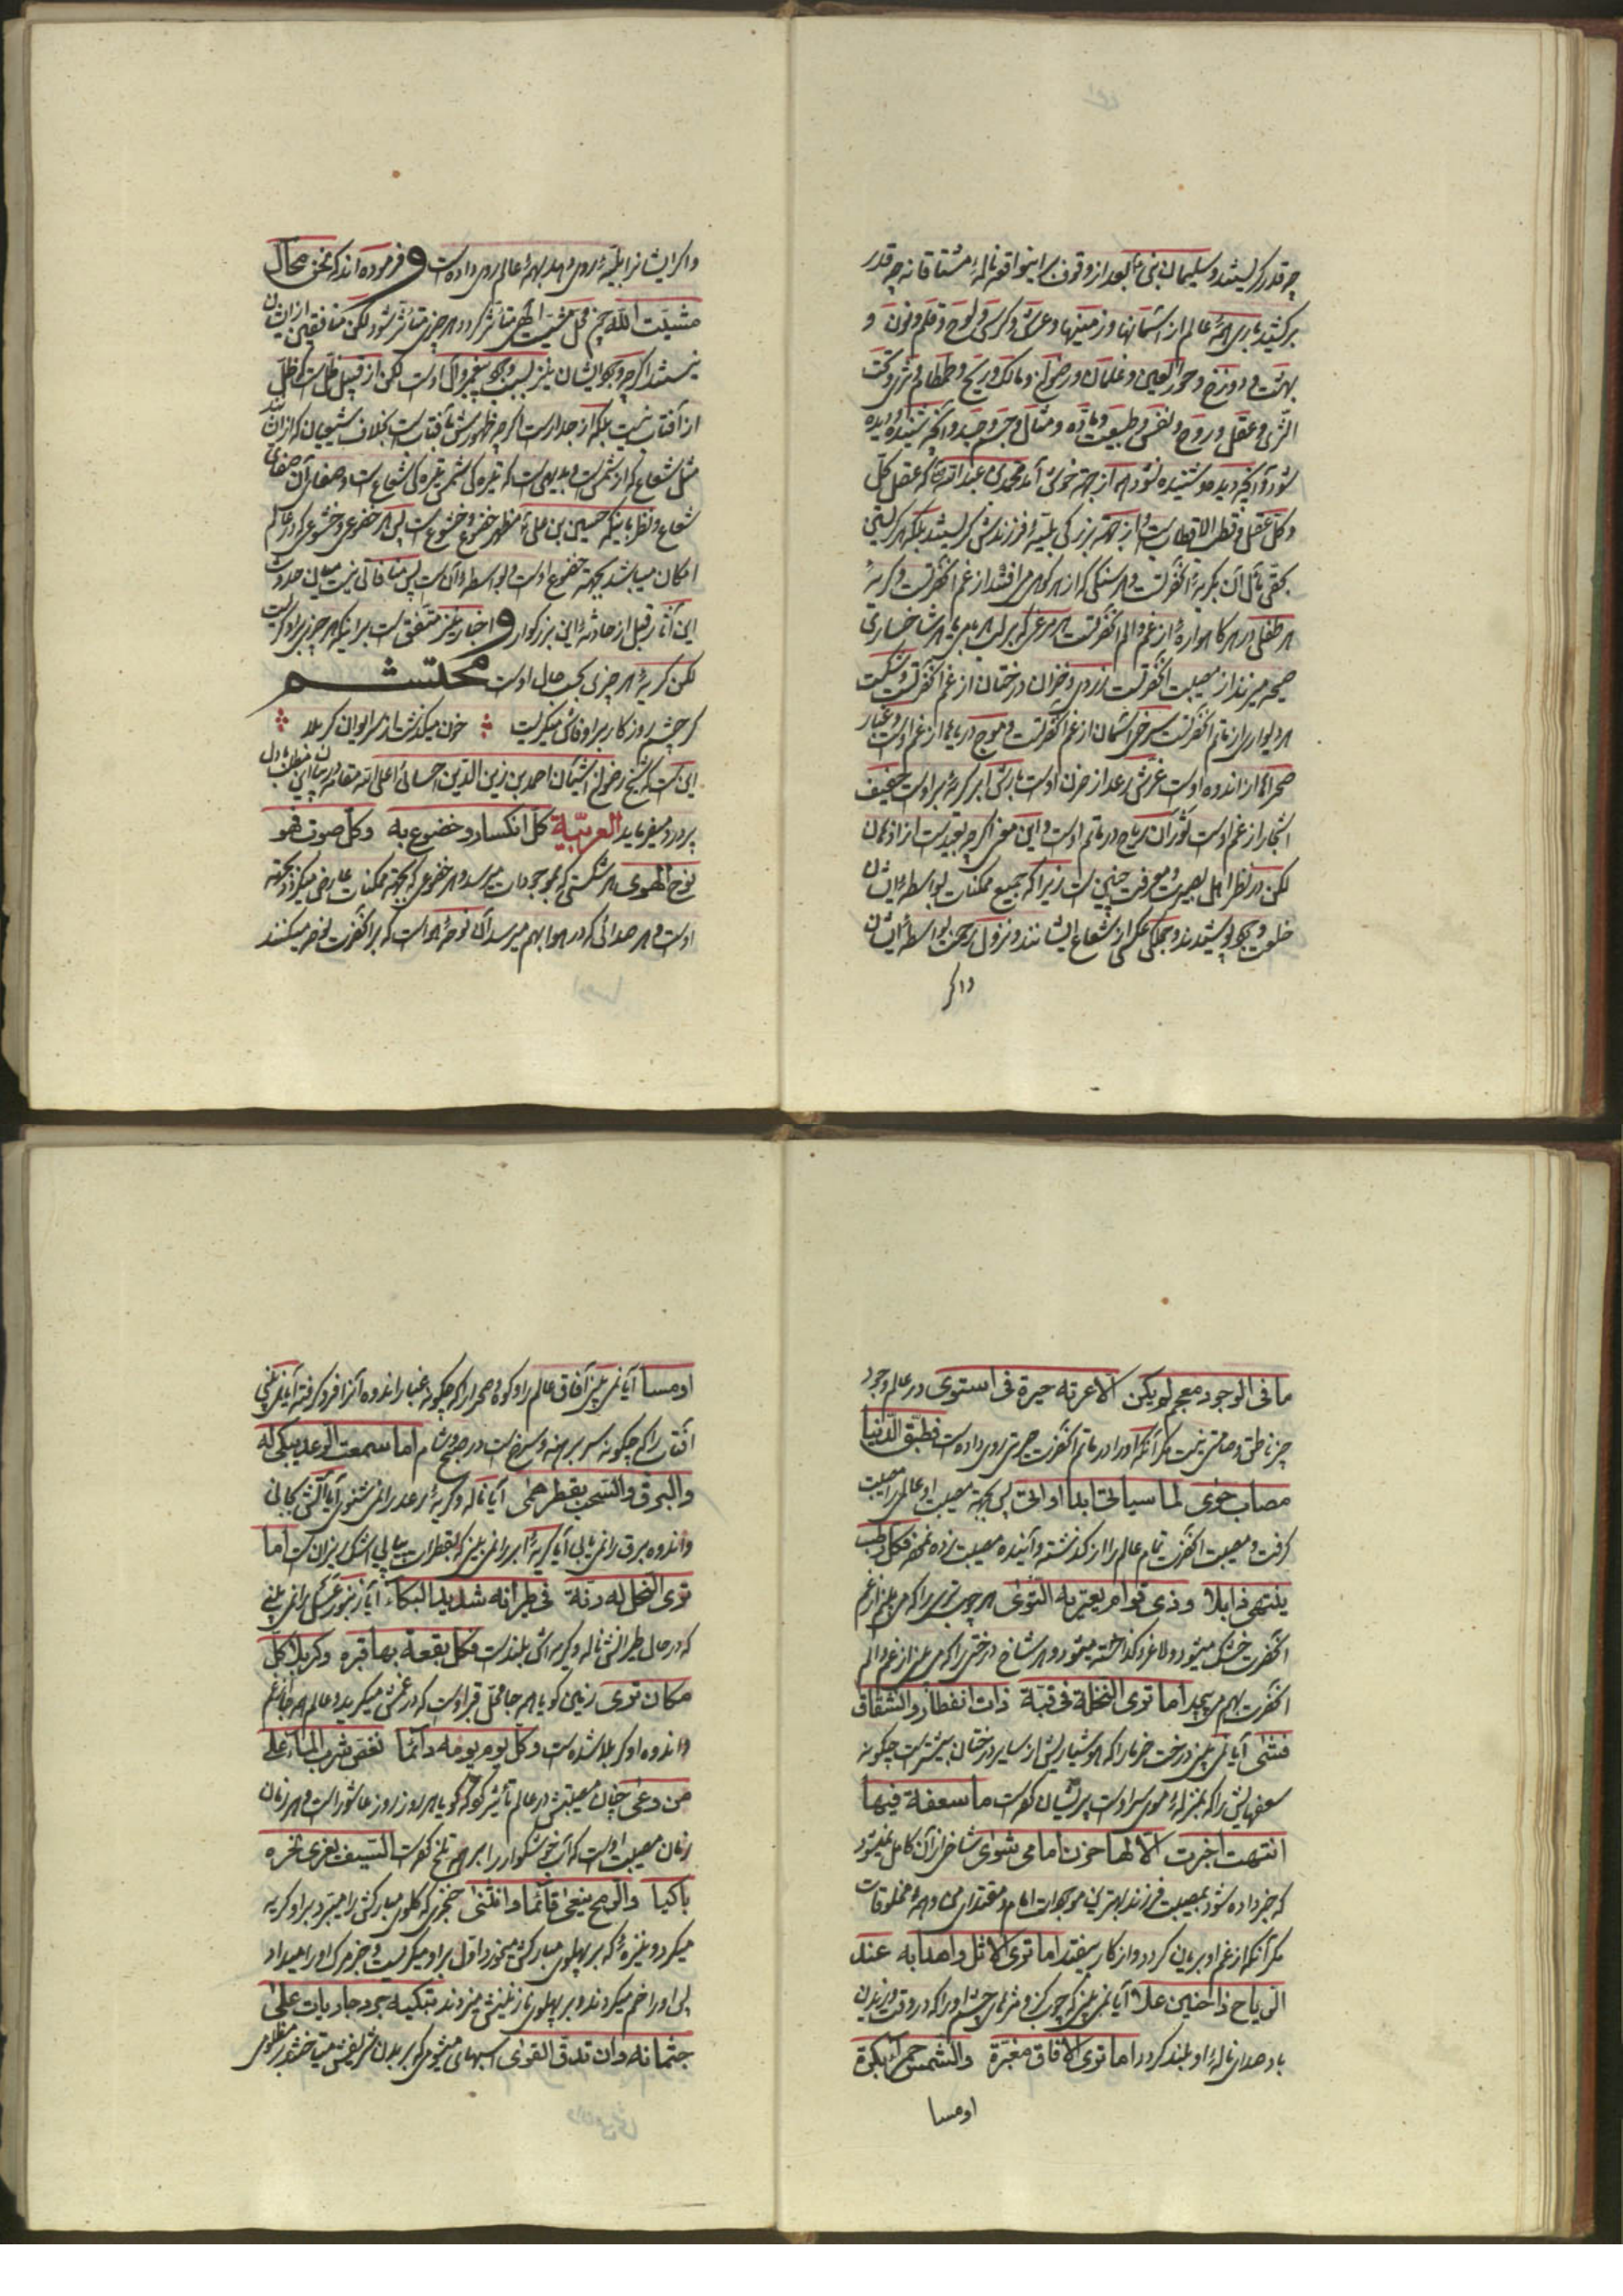 چه قدر گریستند و سلیمان نبی بعد از وقوف بر اینواقعه ناله مشتاقانه چه قدر
برکشید باری همهٔ عالم از آسمانها و زمینها و عرش و کرسی و لوح و قلم و نون و
بهشت و دوزخ و حور العین و غلمان و رضوان و مالک و ریح و طمطام و ثری و تحت
الثری و عقل و روح و نفس و طبیعت و ماده و مثال و جسم و جسد و آنچه شنیده و دیده
شود و آنچه دیده و شنیده نشود همه از جهة خوشی آمد محمد بن عبد الله که عقل کل
و کل عقل و قطب الاقطاب است و از جهة بزرگی بلیهٔ فرزندش گریستند بلکه هر گریستنی
بحقی مآل آن بگریهٔ آنحضرتست و هر سنگی که از هر کوهی می‌افتد از غم آنحضرتست و گریهٔ
هر طفلی در هر گاهواره از غم و الم آنحضرتست هر مرغی که بر لب هر بامی یا هر شاخساری
صیحه میزند از مصیبت آنحضرتست زردی خزان درختان از غم آنحضرتست و شکست
هر دیواری از ماتم آنحضرتست سرخی آسمان از غم آنحضرتست و موج دریاها از غم اوست و غبار
صحراها از اندوه اوست غرش رعد از حزن اوست بارش ابر گریهٔ بر اوست حفیف
اشجار از غم اوست ثوران ریاح در ماتم اوست و این معنی اگر چه بعید است از اذهان
لکن در نظر اهل بصیرت و معرفت چنین است زیرا که جمیع ممکنات بواسطهٔ ایشان
خلعت وجود پوشیدند و همگی عکسی از شعاع ایشانند و نزول رحمت بواسطهٔ ایشان
و اگر
و اگر ایشانرا بلیهٔ روی دهد بهمهٔ عالم روی داده است و فرموده‌اند که نحن محال
مشیت الله چه محل مشیت الهی متأثر گردد هر چیزی متأثر شود لکن منافقین از ایشان
نیستند اگر چه وجود ایشان نیز بسبب وجود پیغمبر و آل اوست لکن از قبیل ظل است که ظل
از آفتاب نیست بلکه از جدار است اگر چه ظهورش بآفتاب است بخلاف شیعیان که از ایشانند
مثل شعاع که از شمس است و بدیهی است که تیره‌گی شمس تیره‌گی شعاع است و صفای آن صفای
شعاع و نظر باینکه حسین بن علی مظهر خضوع و خشوع است پس هر خضوعی و خشوعی که در عالم
امکان میباشد بجهة خضوع اوست و بواسطه آن است پس منافاتی نیست میان حدوث
این آثار قبل از حادثهٔ این بزرگوار و اخبار نیز متفق است بر اینکه هر چیزی بر او گریست
لکن گریهٔ هر چیزی بحسب حال اوست محتشم
گر چشم روزگار بر او فاش میگریست خون میگذشت از سر ایوان کربلا
این است که شیخ رضوان آشیان احمد بن زین الدین احسائی اعلی الله مقامه در بیان این مطلب با دل
پر درد میفرماید العربیّة کل انکسار و خضوع به وکل صوت فهو
نوح الهوی هر شکستی که بموجودات میرسد و هر خضوعی که بجهة ممکنات عارض میگردد بجهة
اوست و هر صدائی که در هوا بهم میرسد آن نوحهٔ هواست که بر آنحضرت نوحه میکنند
ما فی الوجود معجم لم یکن الا عرته حیرة فی استوی در عالم وجود
چیز ناطق و صامتی نیست مگر آنکه او را در ماتم آنحضرت حیرتی روی داده است فطبق الدنیا
مصاب جوی لما سیاتی ابدا او اتی پس بجهة مصیبت او عالم را مصیبت
گرفت و مصیبت آنحضرت تمام عالم را از گذشته و آینده مصیبت زده نمود فکل رطب
ینتهی ذابلا وذی قوام یعتریه التوی هر چوب تری را که می‌بینی از غم
آنحضرت خشک میشود و لاغر و گداخته میشود و هر شاخ درختی را که می‌بینی از غم و الم
آنحضرت بهم می‌پیچد اما تری النخلة فی قبة ذات انفطار وانشقاق
فشتی آیا نمی‌بینی درخت خرما را که هوشیاریش از سایر درختان بیشتر است چگونه
سعفهایش را که بمنزلهٔ موی سر اوست پریشان نموده است ما سعفة فیها
انتهت اخبرت الا لها حزن امامی شوی شاخی از آن کامل نمیشود
که خبر داده شود بمصیبت فرزند بهترین موجودات امام و مقتدای من و همهٔ مخلوقات
مگر آنکه از غم او بریان گردد و از کار بیفتد اما تری الاثل واهدابه عند
الریاح ذا حنین علا آیا نمی‌بینی که چوب گز و مژه‌های چشم او را که در وقت وزیدن
باد صدای نالهٔ او بلند گردد اما تری الافاق مغبرة والشمس حمراء بکرة
او مسا
او مسا آیا نمی‌بینی آفاق عالم را و کوه و صحرا را که چگونه غبار اندوه آنرا فرو گرفته آیا نمی‌بینی
آفتاب را که چگونه سر برهنه و سرخ است در صبح و شام اما سمعت الرعد یبکی له
والبرق والسحب بقطر همی آیا ناله و گریهٔ رعد را نمی‌شنوی آیا آتش بجانی
و اندوه برق را نمی‌یابی آیا گریهٔ ابر را نمی‌بینی که بقطرات پیاپی اشک ریزان است اما
تری النحل له رنة فی طیرانه شدید البکاء آیا زنبور عسل را نمی‌بینی
که در حال طیرانش ناله و گریه‌اش بلند است فکل بقعة بها قبره وکربلا کل
مکان تری زمین گویا همه جا محل قبر اوست که در غمش میگرید و عالم همه جا از غم
و اندوه او کربلا شده است وکل یوم یومه دائما نغص شرب الماء علی
من وعی چنان مصیبتش در عالم تأثیر کرده که گویا هر روز روز عاشوراست و هر زمان
زمان مصیبت اوست که آب خوشگوار را بر همه تلخ نموده است السیف یفری نحره
باکیا والرمح ینعی قائما وانثنی خنجری که گلوی مبارکش را میبرد بر او گریه
میکرد و نیزهٔ که بر پهلوی مبارکش میخورد اول بر او میگریست و خبر مرگ او را میداد
پس او را خم میکردند و بر پهلوی نازنینش میزدند تبکیه جرد جاریات علی
جثمانه وان تدق القری اسبهای میشوم که بر بدن شریفش میتاختند بر مظلومی